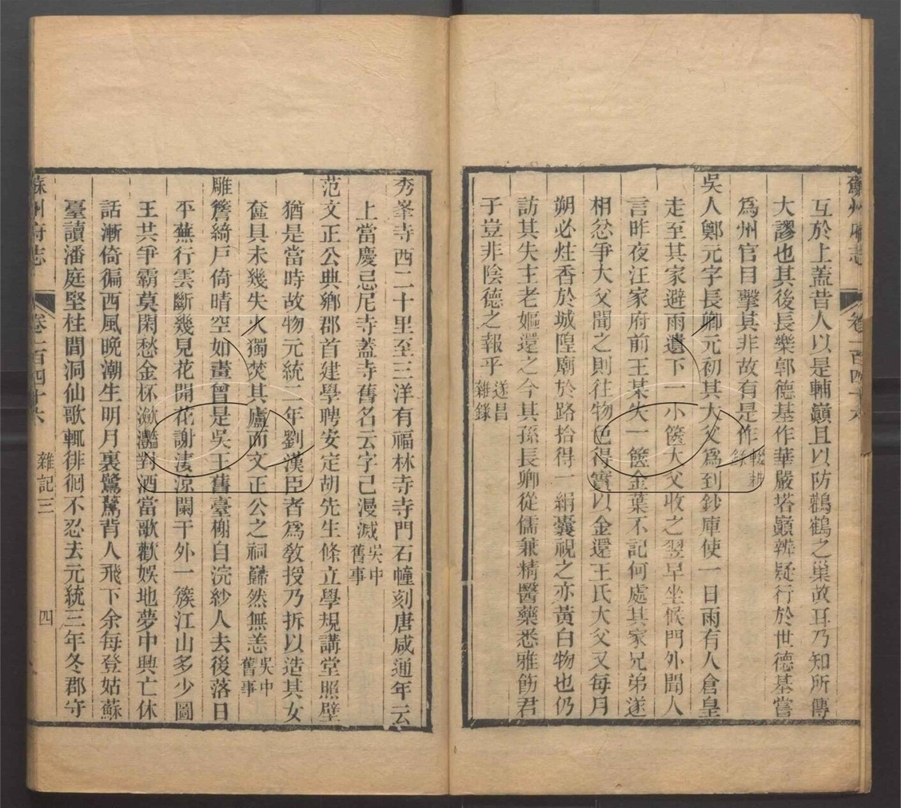 蘇州府志 卷一百四十六
互於上蓋昔人以是輔巔且以防鸛鶴之巢故耳乃知所傳
大謬也其後長樂郭德基作華嚴塔巔辨疑行於世德基嘗
為州官目擊其非故有是作輟耕錄
吳人鄭元字長卿元初其大父為到鈔庫使一日雨有人倉皇
走至其家避雨遺下一小篋大父收之翌早坐候門外聞人
言昨夜汪家府前王某失一篋金葉不記何處其家兄弟遂
相忿爭大父聞之則往物色得實以金還王氏大父又每月
朔必炷香於城隍廟於路拾得一絹囊視之亦黃白物也仍
訪其失主老嫗還之今其孫長卿從儒兼精醫藥悉雅飭君
于豈非陰德之報乎遂昌雜錄
秀峯寺西二十里至三洋有福林寺寺門石幢刻唐咸通年云
上當慶忌尼寺蓋寺舊名云字已漫滅吳中舊事
范文正公典鄉郡首建學聘安定胡先生條立學規講堂照壁
猶是當時故物元統二年劉漢臣者為教授乃拆以造其女
奩具未幾失火獨焚其廬而文正公之祠巋然無恙吳中舊事
雕簷綺戶倚晴空如畫曾是吳王舊臺榭自浣紗人去後落日
平蕪行雲斷幾見花開花謝淒涼闌干外一簇江山多少圖
王共爭霸莫閑愁金杯瀲灩對酒當歌歡娛地夢中興亡休
話漸倚徧西風晚潮生明月裏鷺鷥背人飛下余每登姑蘇
臺讀潘庭堅柱間洞仙歌輒徘徊不忍去元統三年冬郡守
蘇州府志 卷一百四十六 雜記三 四